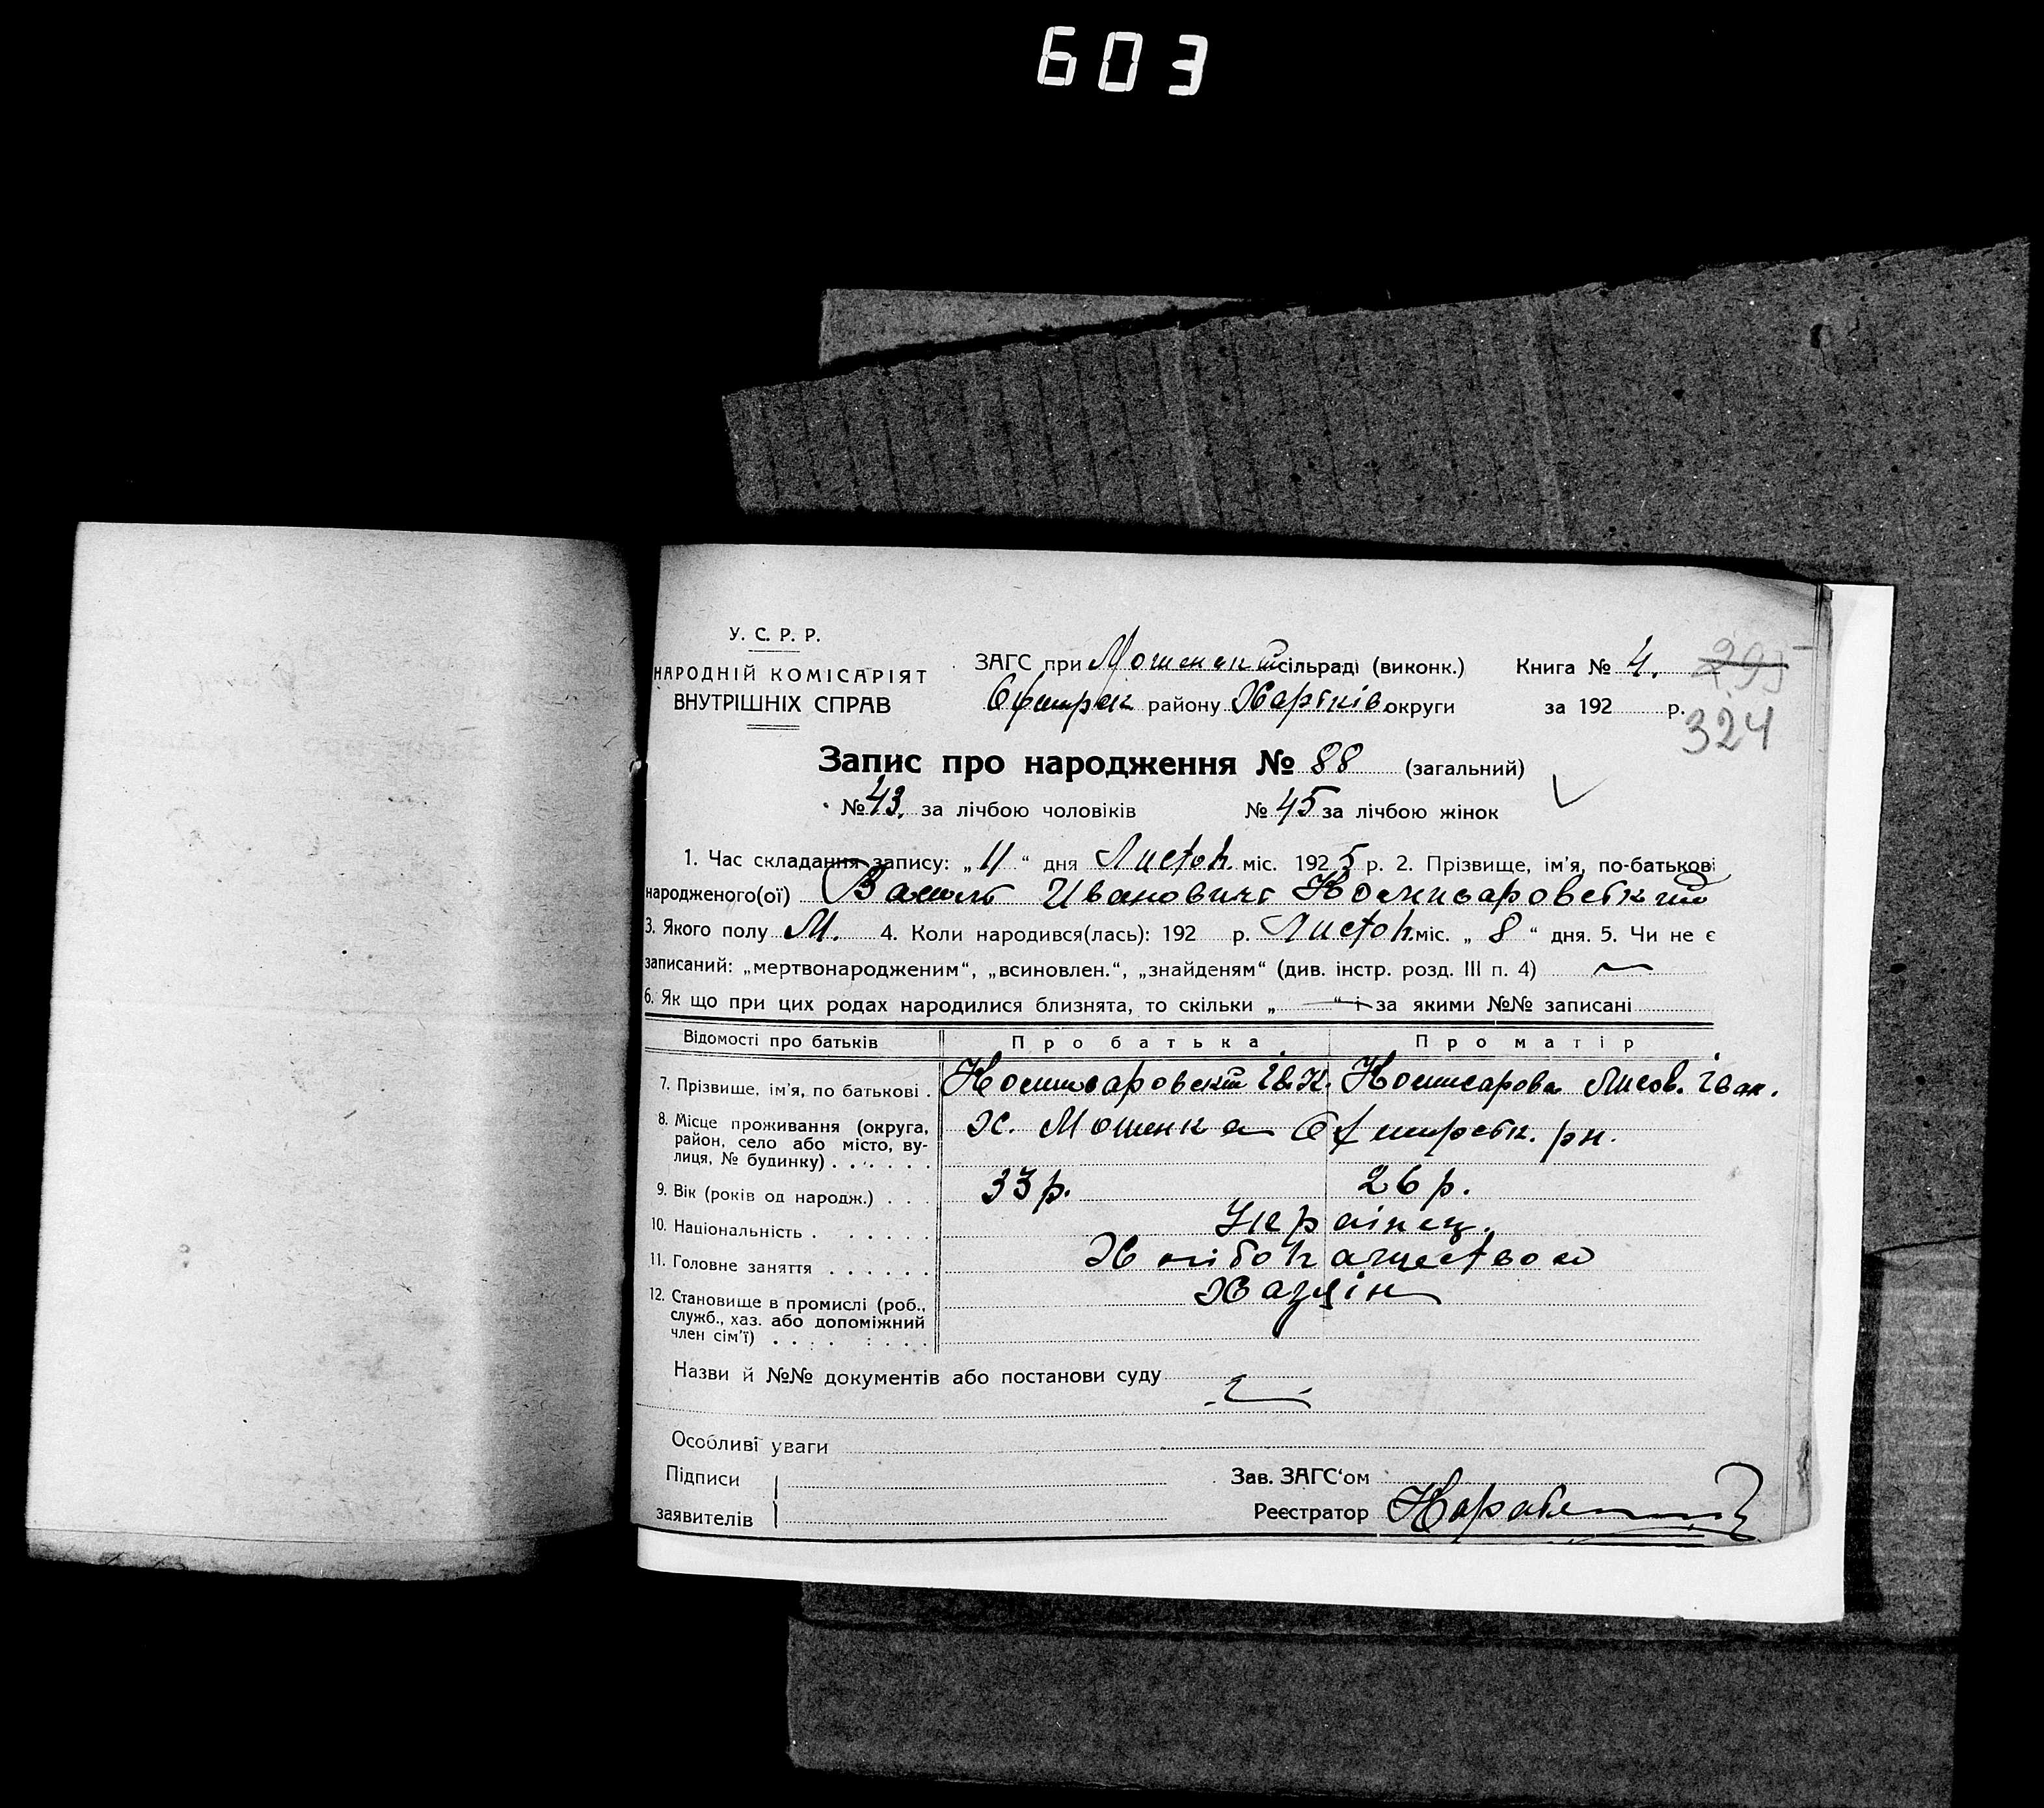 603
У. С. Р. Р.
НАРОДНІЙ КОМІСАРІЯТ
ВНУТРІШНІХ СПРАВ
ЗАГС при Мошенск сільраді (виконк.)
району Харьків округи
Книга № 4.
за 192 р.
295
324
Запис про народження № 88 (загальний)
№ 43. за лічбою чоловіків № 45 за лічбою жінок
1. Час складання запису: „ 11 “ дня Листоп. міс. 1925 р. 2. Прізвище, ім'я, по-батькові
народженого(ої) Василь Ивановичь
3. Якого полу М. 4. Коли народився(лась): 192 р. Листоп. міс. „ 8 “ дня. 5. Чи не є
записаний: „мертвонародженим“, „всиновлен.“, „знайденям“ (див. інстр. розд. III п. 4)
6. Як що при цих родах народилися близнята, то скільки „ “ і за якими №№ записані
Відомості про батьків Про батька Про матір
7. Прізвище, ім'я, по батькові . Ів. К. Іван.
8. Місце проживання (округа, район, село або місто, вулиця, № будинку) . . . . . . Х. Мошенка рн.
9. Вік (років од народж.) . . . 33 р. 26 р.
10. Національність . . . . . . Украінец.
11. Головне заняття . . . . . . Хлібопашеством
12. Становище в промислі (роб., служб., хаз. або допоміжний член сім'ї) . . . . : . . . Хазяін
Назви й №№ документів або постанови суду
Особливі уваги
Підписи
заявителів
Зав. ЗАГС'ом
Реєстратор